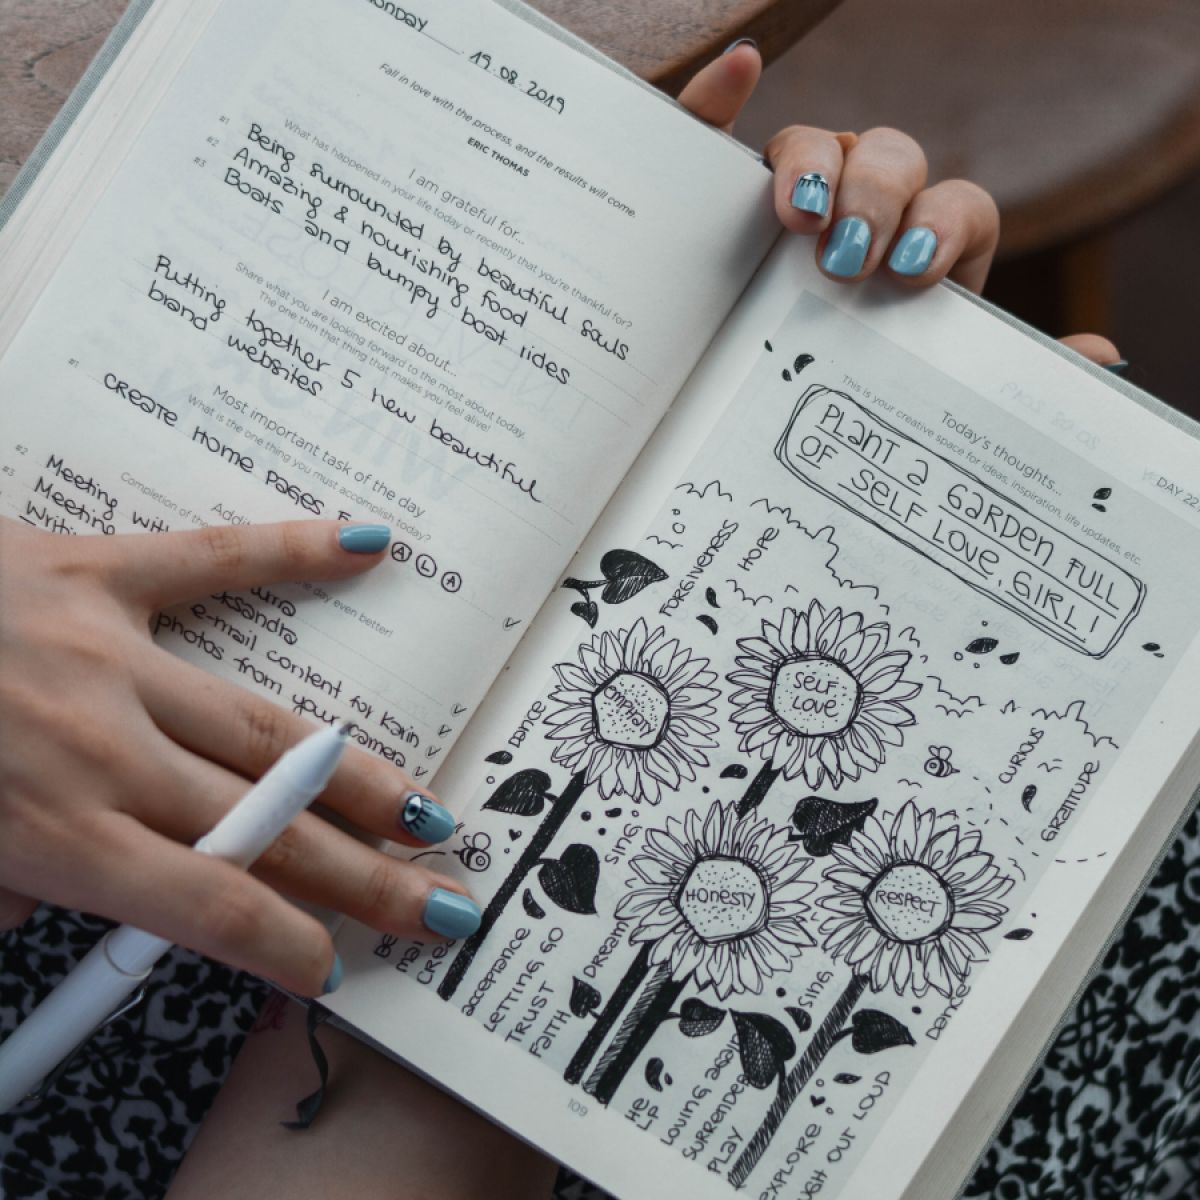 Monday 19.08.2019
Fall in love with the process, and the results will come.
ERIC THOMAS
I am grateful for...
What has happened in your life today or recently that you're thankful for?
#1 Being surrounded by beautiful souls
#2 Amazing & nourishing food
#3 Boats and bumpy boat rides
I am excited about...
Share what you are looking forward to the most about today.
The one thin that thing that makes you feel alive!
Putting together 5 new beautiful
brand websites
Most important task of the day
What is the one thing you must accomplish today?
#1 CREATE HOME PAGES
A L A
Completion of the
the day even better!
#2 Meeting with
#3 Meeting
e-mail content for Karin
photos from your camera
Today's thoughts...
This is your creative space for ideas, inspiration, life updates, etc.
DAY 22
PLANT a GARDEN FULL
OF SELF LOVE, GIRL!
FORGIVENESS
HOPE
SELF
LOVE
EMPHATY
Dance
CURIOUS
GRATITUDE
SING
HONESTY
RESPECT
DREAM
SING
Dance
acceptance
LETTING GO
TRUST
FAITH
LOVING again
SURRENDER
PLAY
EXPLORE
OUT LOUD
109